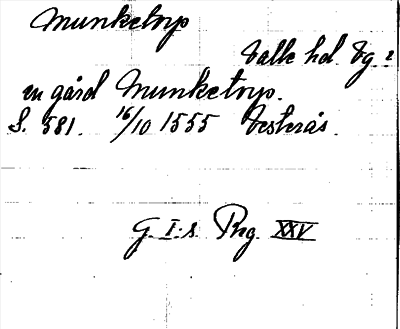 Munketorp
Valle hd. Vg. 2
en gård Munketorp.
S. 581. 16/10 1555 Vesterås.
G. I:s. Reg. XXV